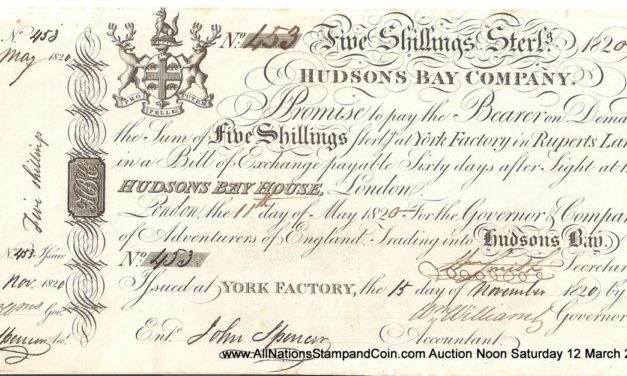 No 453
May 1820
Five shillings
No 453 Issue
Nov. 1820
Gov.
Spencer Acc.
PRO PELLE CUTEM
HBC
No. 453 Five Shillings Sterlg. 1820
HUDSONS BAY COMPANY.
Promise to pay the Bearer on Dema
the Sum of Five Shillings sterlg. at York Factory in Ruperts Lan
in a Bill of Exchange payable Sixty days after Sight at th
HUDSONS BAY HOUSE, London
London, the 11th day of May 1820 For the Governor & Compan
of Adventurers of England, Trading into Hudsons Bay.
No. 453
Secretar
Issued at YORK FACTORY, the 15 day of November 1820 by
Wm Williams Governor
Entd. John Spencer Accountant.
www.AllNationsStampandCoin.com Auction Noon Saturday 12 March 2